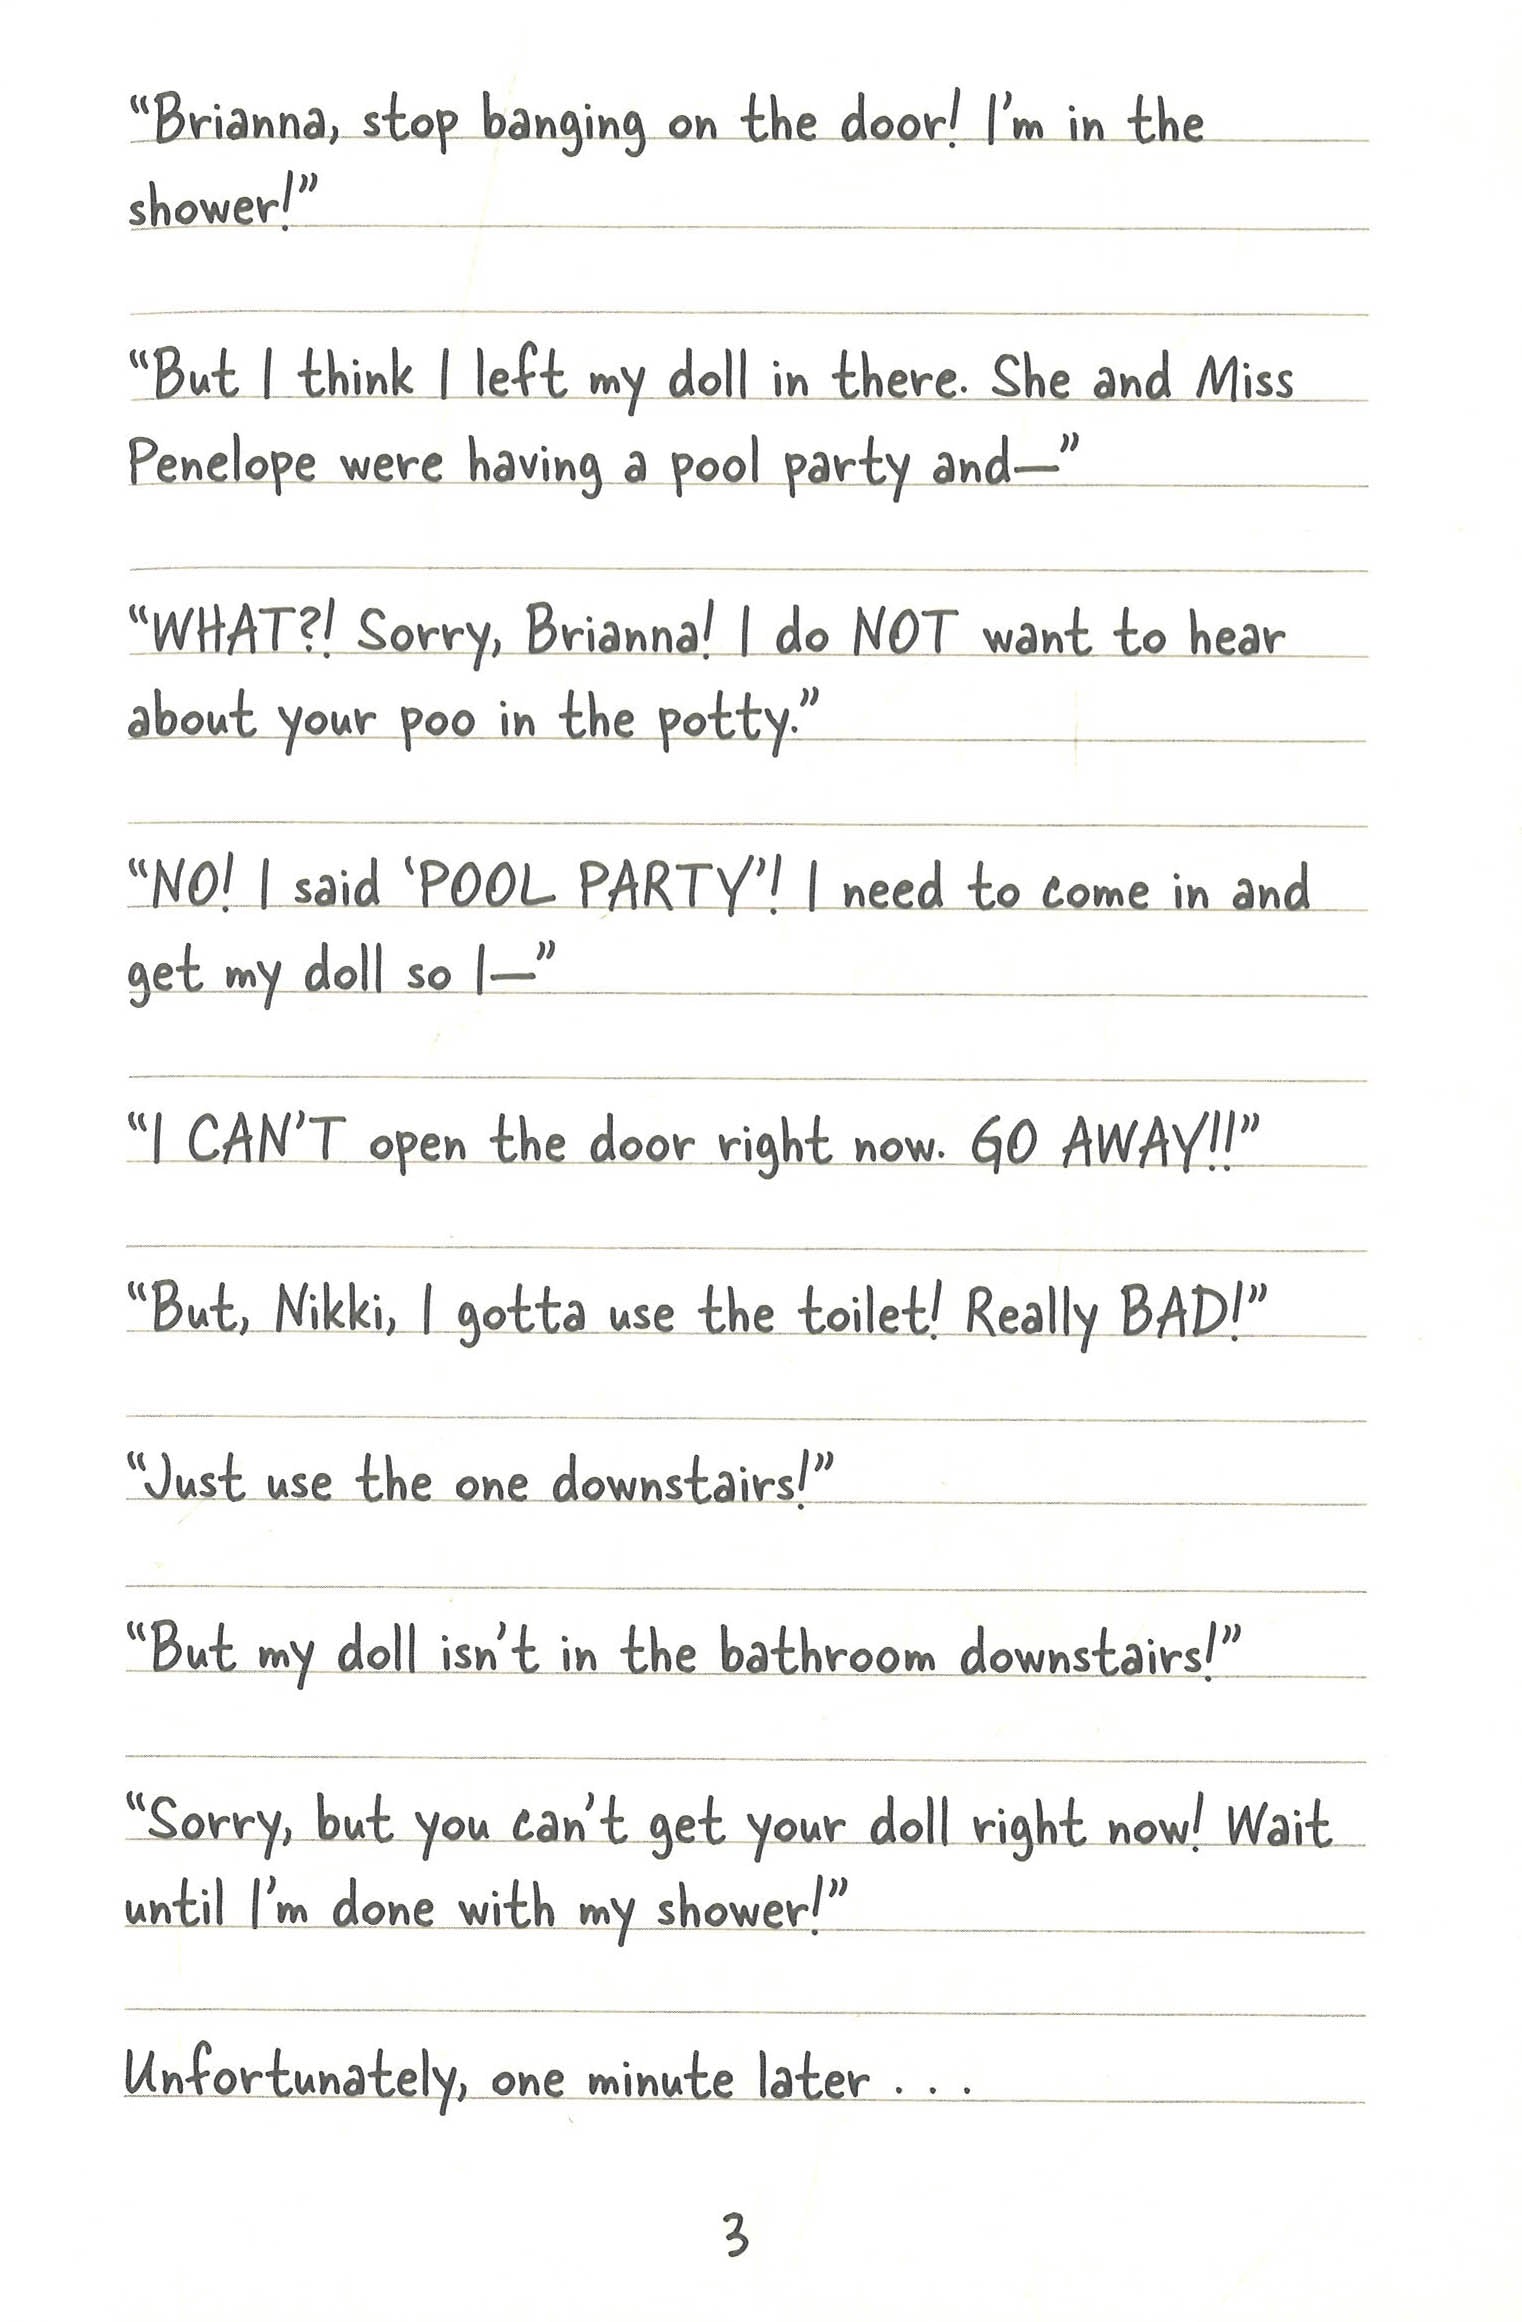 “Brianna, stop banging on the door! I’m in the
shower!”
“But I think I left my doll in there. She and Miss
Penelope were having a pool party and—”
“WHAT?! Sorry, Brianna! I do NOT want to hear
about your poo in the potty.”
“NO! I said ‘POOL PARTY’! I need to come in and
get my doll so I—”
“I CAN’T open the door right now. GO AWAY!!”
“But, Nikki, I gotta use the toilet! Really BAD!”
“Just use the one downstairs!”
“But my doll isn’t in the bathroom downstairs!”
“Sorry, but you can’t get your doll right now! Wait
until I’m done with my shower!”
Unfortunately, one minute later . . .
3